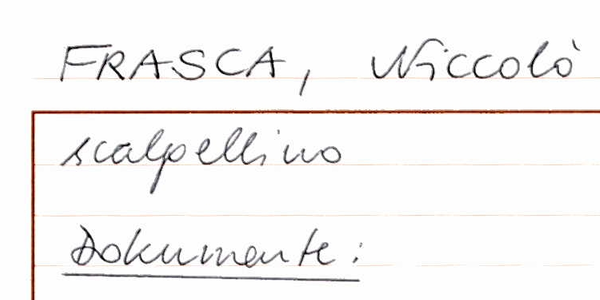 FRASCA, Niccolò
scalpellino
Dokumente: